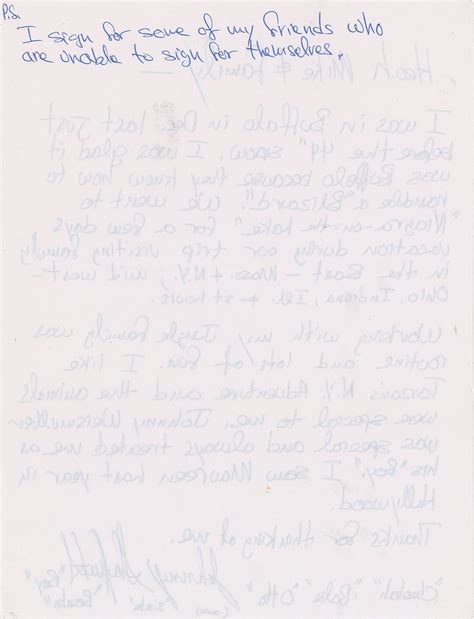 P.S.
I sign for some of my friends who
are unable to sign for themselves.
Mike & Family —
I was in Buffalo in Dec. last just
before the 44" snow. I was glad it
was Buffalo because they know how to
handle a "Blizard." We went to
"Niagra-on-the-Lake" for a few days
vacation during our trip visiting family
in the East — Mass. & N.Y., mid west —
Ohio, Indiana, Ill. &
Working with my Jungle Family was
routine and lots of fun. I like
Tarzan's N.Y. Adventure and the animals
were special to me. Johnny Weismuller
was special and always treated me as
his "Boy". I saw Maureen last year in
Hollywood.
Thanks for thinking of me.
Johnny Sheffield "Boy"
"Cheetah" "Otto" "Bomba"